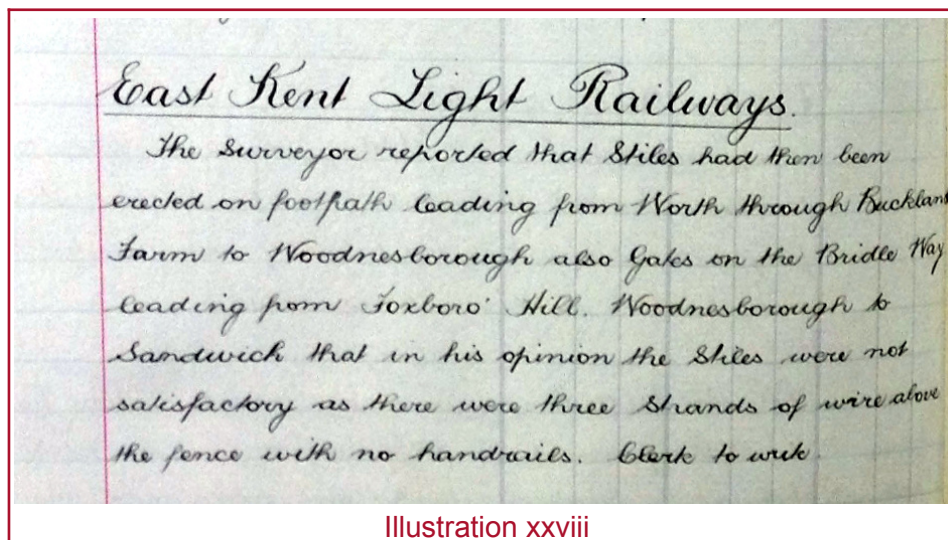 East Kent Light Railways.
The Surveyor reported that Stiles had then been
erected on footpath leading from Worth through Buckland
Farm to Woodnesborough also Gates on the Bridle Way
leading from Foxboro' Hill. Woodnesborough to
Sandwich that in his opinion the Stiles were not
satisfactory as there were three strands of wire above
the fence with no handrails. Clerk to write.
Illustration xxviii